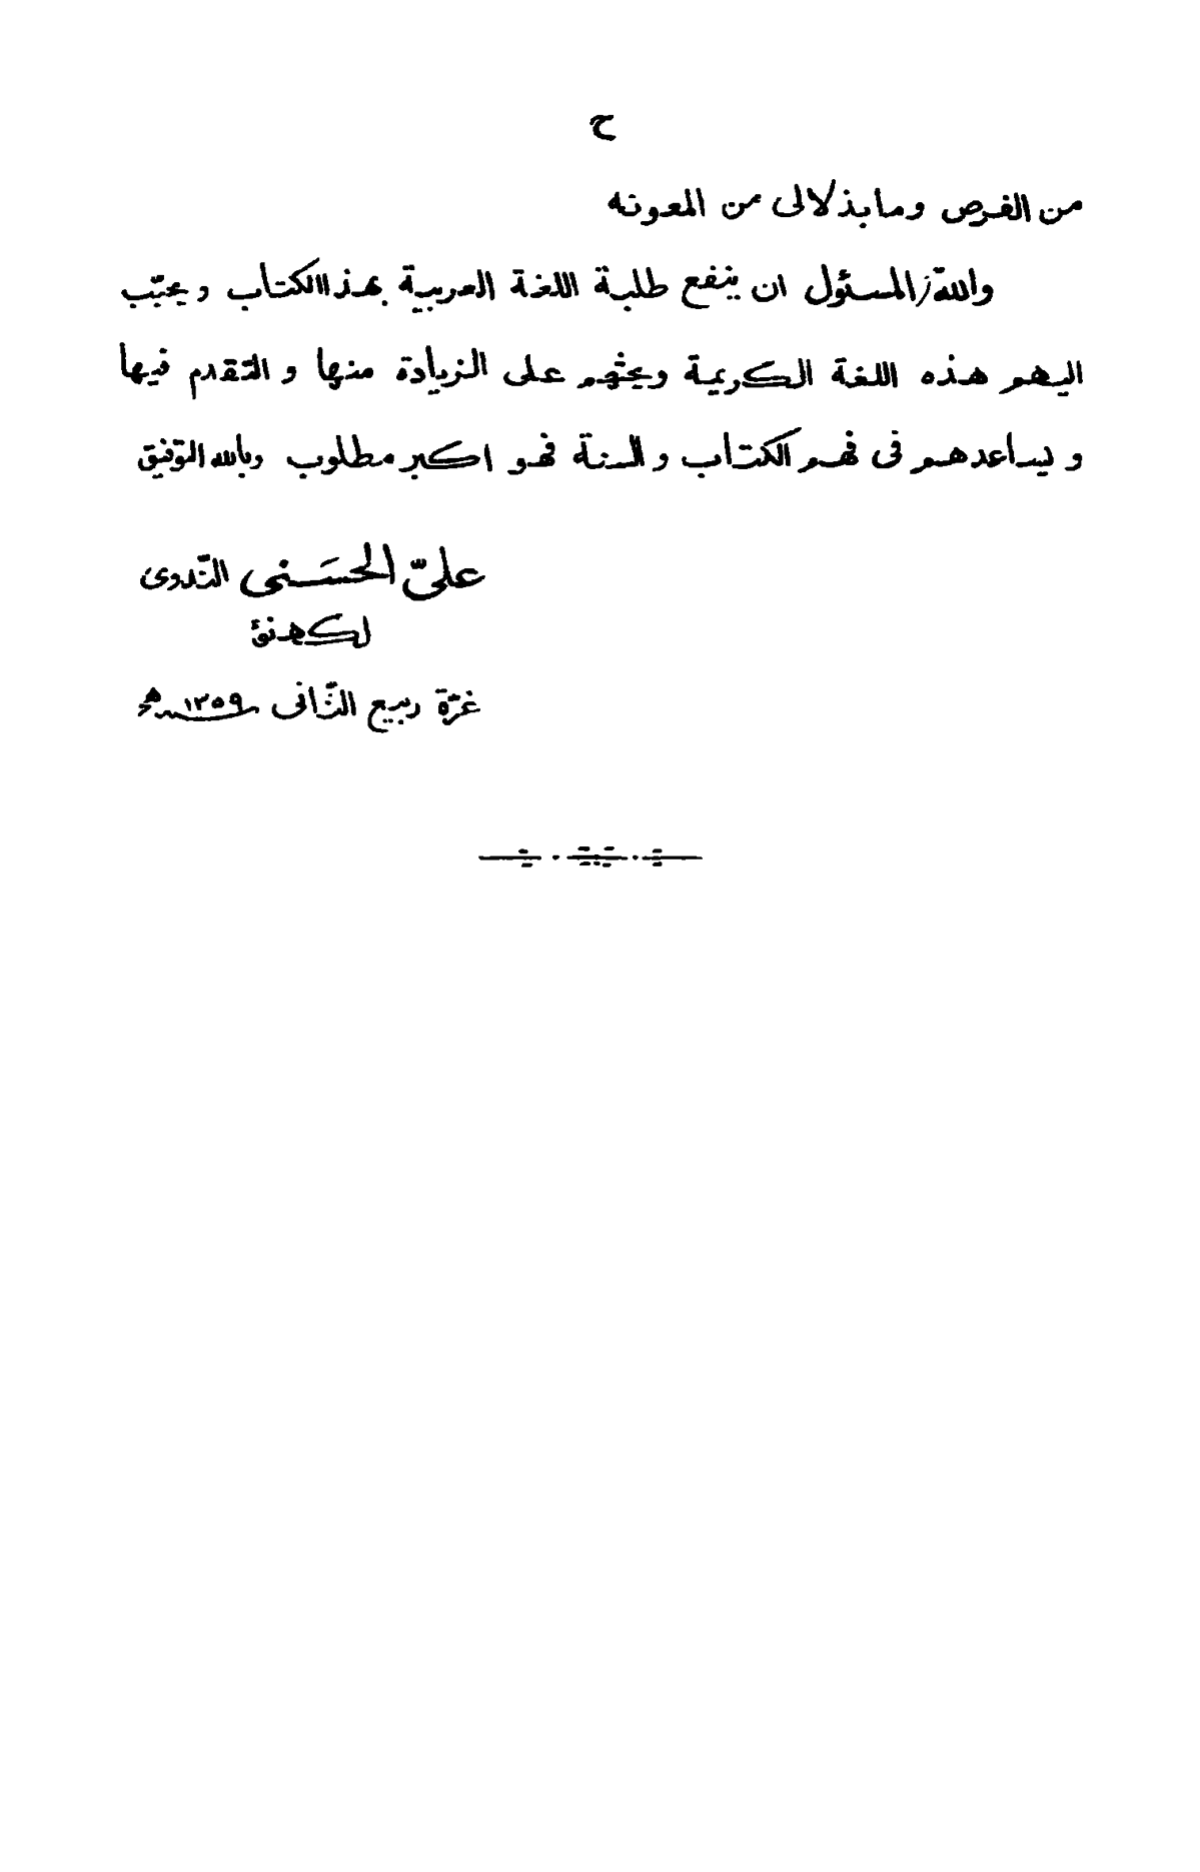 ح
من الفرص وما بذلا لى من المعونه
والله المسئول ان ينفع طلبة اللغة العربية بهذا الكتاب و يحبّب
اليهم هذه اللغة الكريمة ويحثهم على الزيادة منها و التقدم فيها
و يساعدهم فى فهم الكتاب و السنة فهو اكبر مطلوب وبالله التوفيق
علىّ الحسَنى النّدوى
لكهنؤ
غرّة ربيع الثّانى ١٣٥٩ﻫ